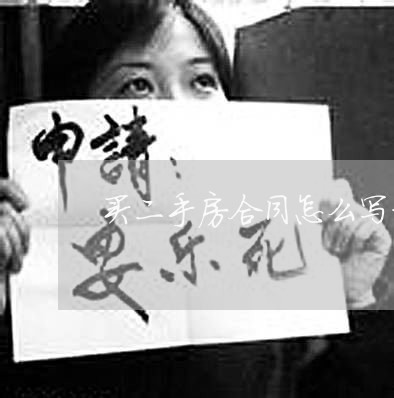 申請：
买二手房合同怎么写
安乐死